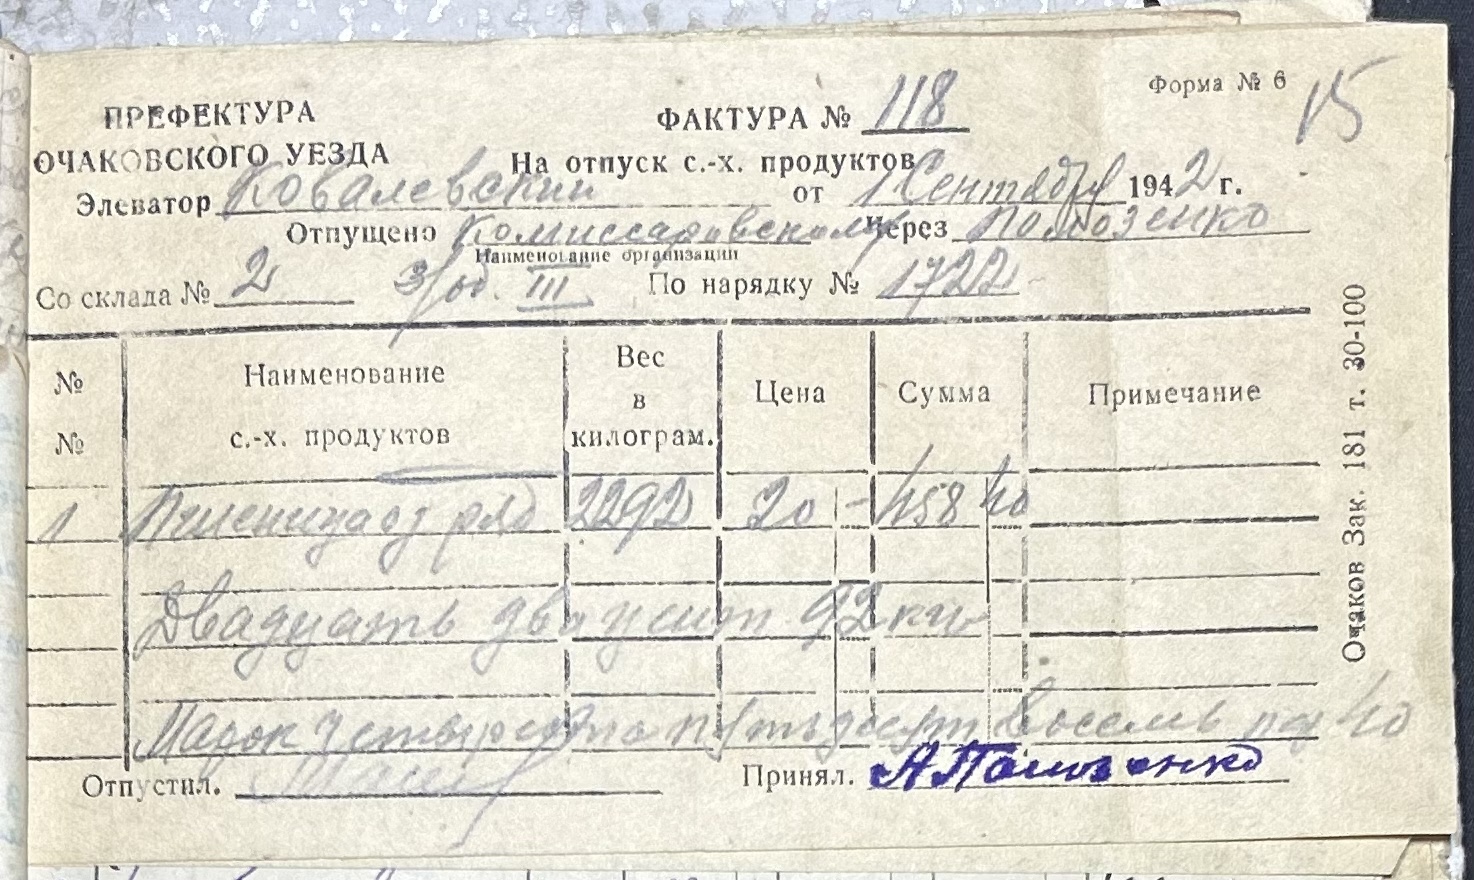 Форма № 6
15
ПРЕФЕКТУРА
ОЧАКОВСКОГО УЕЗДА
ФАКТУРА № 118
На отпуск с.-х. продуктов
Элеватор Ковалевский от 1 Сентября 1942 г.
Отпущено Комиссаровскому Через
Наименование организации
Со склада № 2 III По нарядку № 1722
№ № Наименование с.-х. продуктов Вес в килограм. Цена Сумма Примечание
1 Пшеница оз ряд 2292 20 - 458 40
Двадцать два цент 92 кил
Марок Четыреста пятьдесят восемь пф 40
Отпустил. Принял.
Очаков Зак. 181 т. 30-100